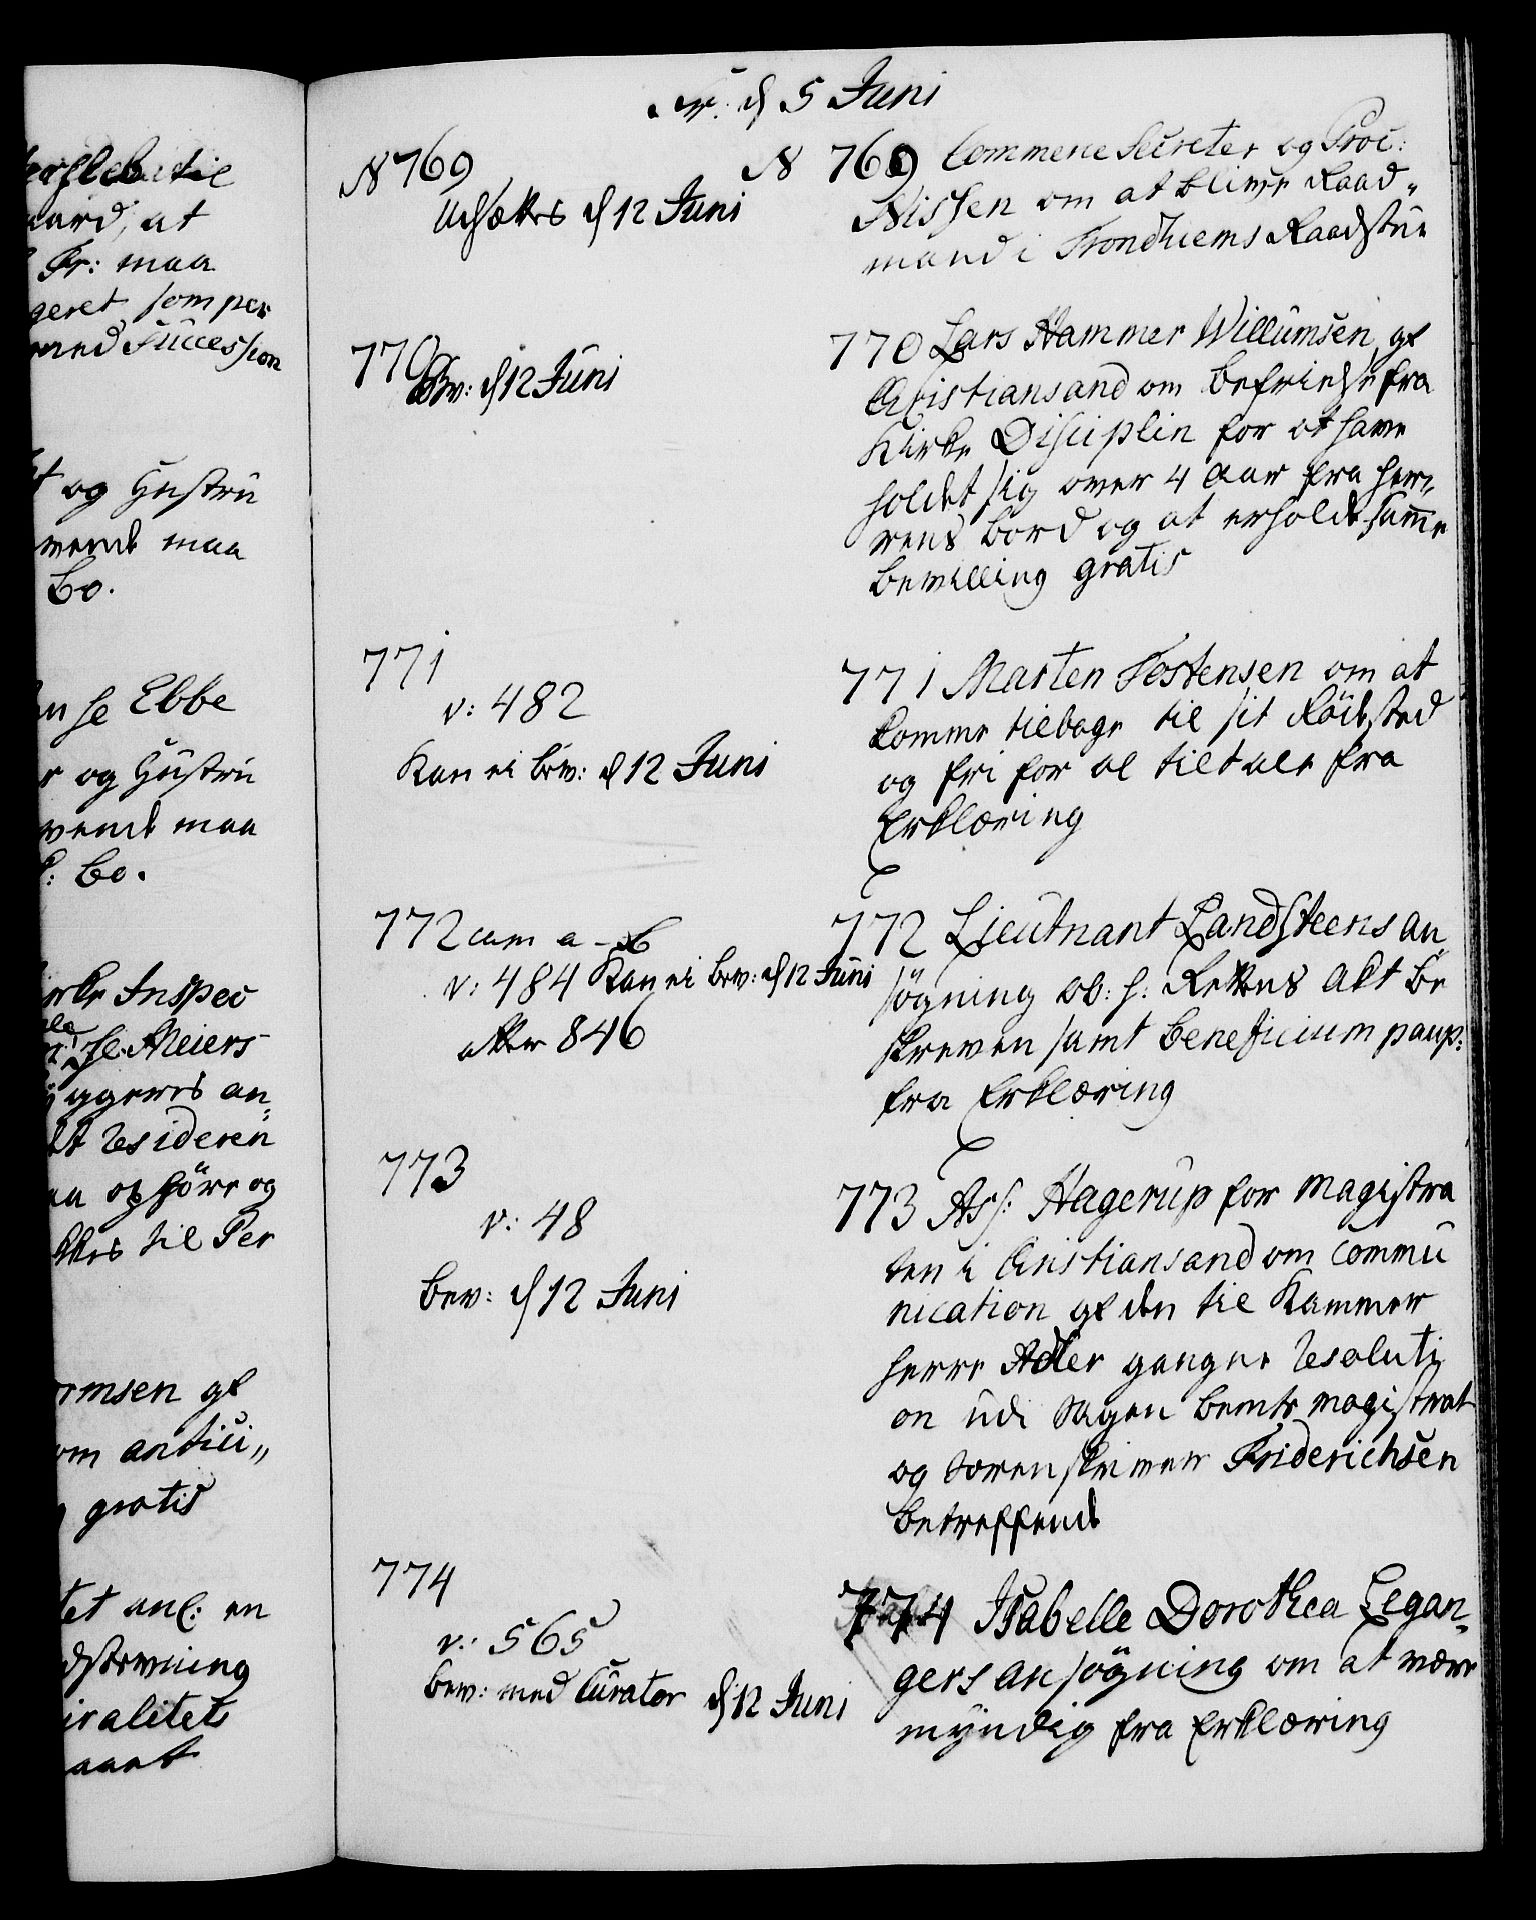 d 5 Juni
N 769
Udsættes d 12 Juni
N 769 Commerce Secreter og Proc:
Nissen om at blive Raad„
mand i Trondhiems Raadstue
770
Bev: d 12 Juni
770 Lars Hammer Willumsen af
Christiansand om befrielse fra
Kirke Disciplin for at have
holdet sig over 4 Aar fra her„
rens bord og at erholde samme
bevilling gratis
771
v: 482
Kan ei bev: d 12 Juni
771 Marten Tostensen om at
komme tilbage til sit Födested
og fri for al tiltale fra
Erklæring
772 cum a - b
v: 484 Kan ei bev: d 12 Juni
atter 846
772 Lieutnant Landsteens an„
søgning ob: h: Rettens Akt be
skreven samt beneficium paup:
fra Erklæring
773
v: 48
bev: d 12 Juni
773 Ass: Hagerup for Magistra
ten i Christiansand om commu
nication af den til Kammer
herre Adler gangne Resoluti
on udi Sagen bemte Magistrat
og Sorenskriver Friderichsen
betreffende
774
v: 565
bev: med Curator d 12 Juni
774 Isabelle Dorothea Legan„
gers ansøgning om at være
myndig fra Erklæring
aard, at
Fr: maa
geret som per
med Succession
og Hustru
vende maa
bo.
se Ebbe
og Hustru
vende maa
bo.
Inspec
Meiers
an„
Resideren
og
til Per
msen af
om antici„
gratis
anl: en
iralitets